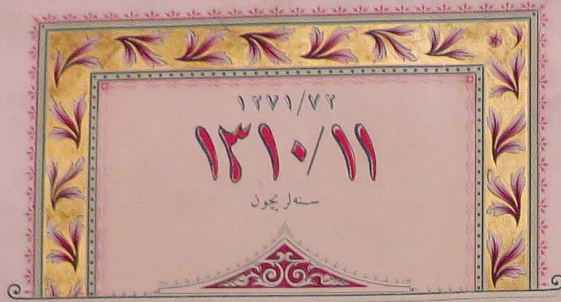 ١٢٧١/٧٢
١٣١٠/١١
سنه‌لریچون